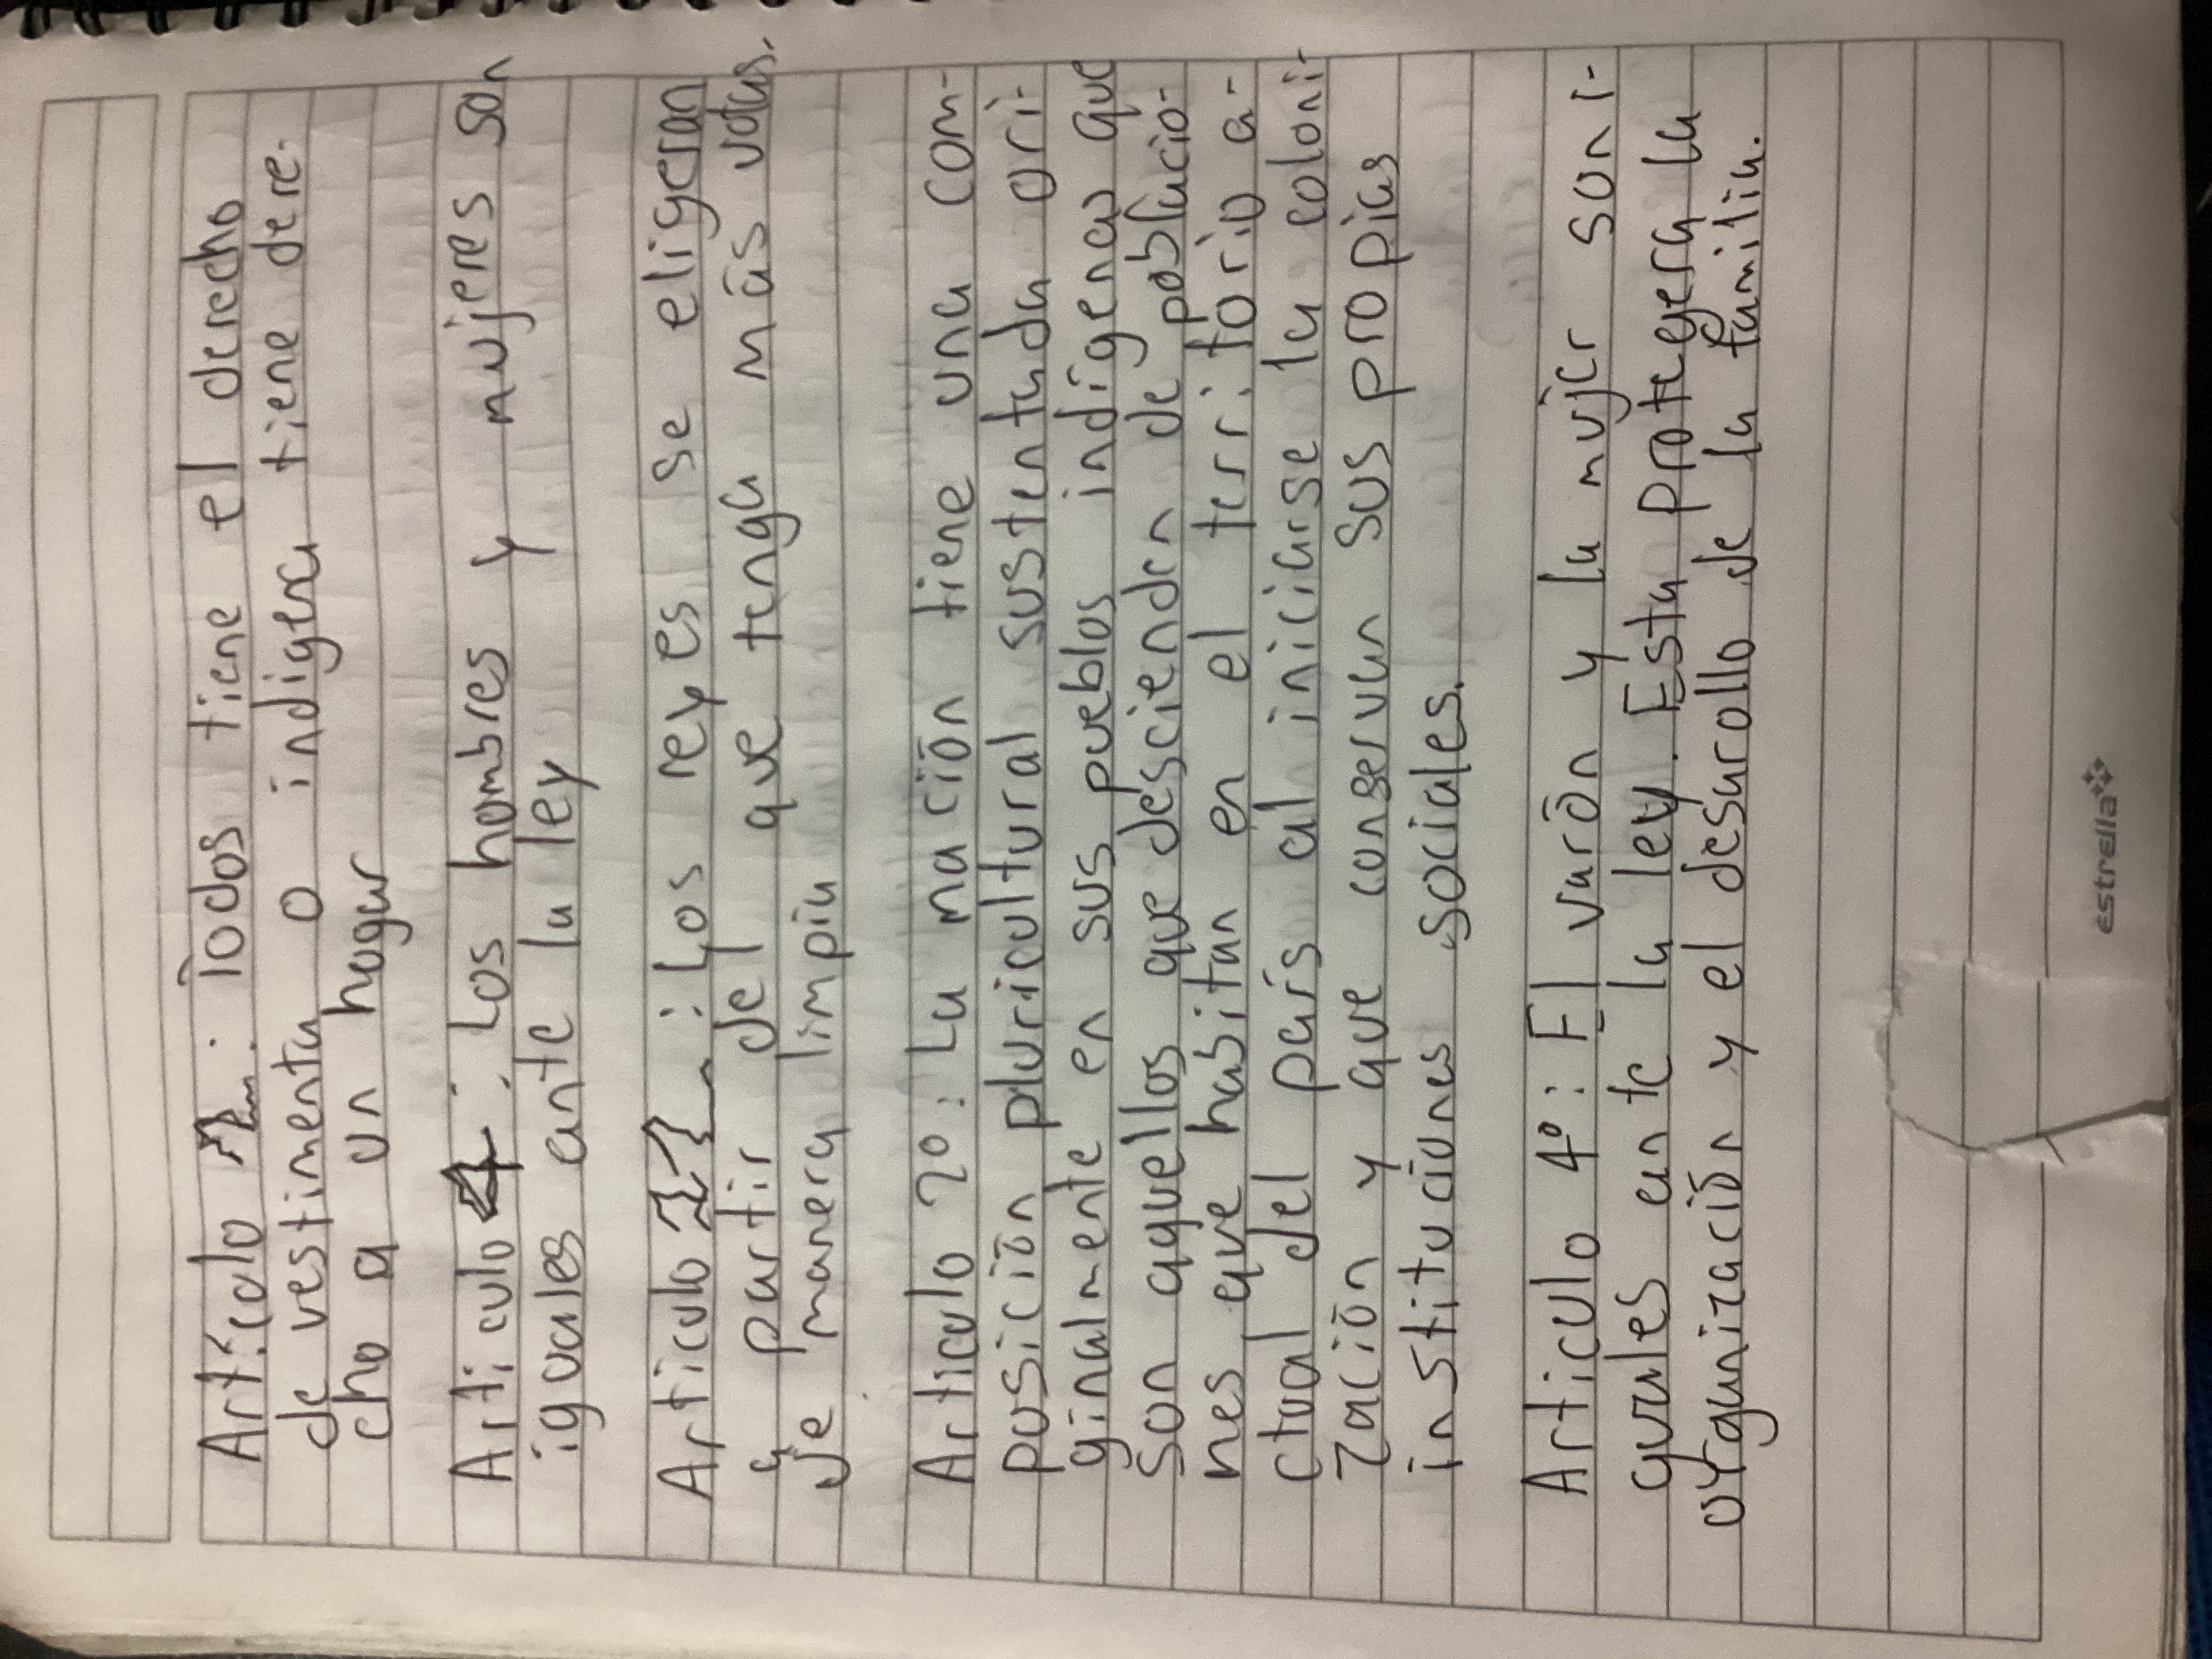 Artículo : Todos tiene el derecho
de vestimenta o indigena tiene dere-
cho a un hogar
Articulo : Los hombres y mujeres son
iguales ante la ley
Articulo : Los reyes se eligeran
a partir del que tenga más votos.
de manera limpia
Articulo 2º: La nación tiene una com-
posición pluricultural sustentada ori-
ginalmente en sus pueblos indígenas que
son aquellos que descienden de poblacio-
nes que habitan en el territorio a-
ctual del país al iniciarse la coloni-
zación y que conservan sus propias
instituciones sociales.
Articulo 4º: El varón y la mujer son i-
guales an te la ley. Esta protegera la
organización y el desarollo de la familia.
estrella